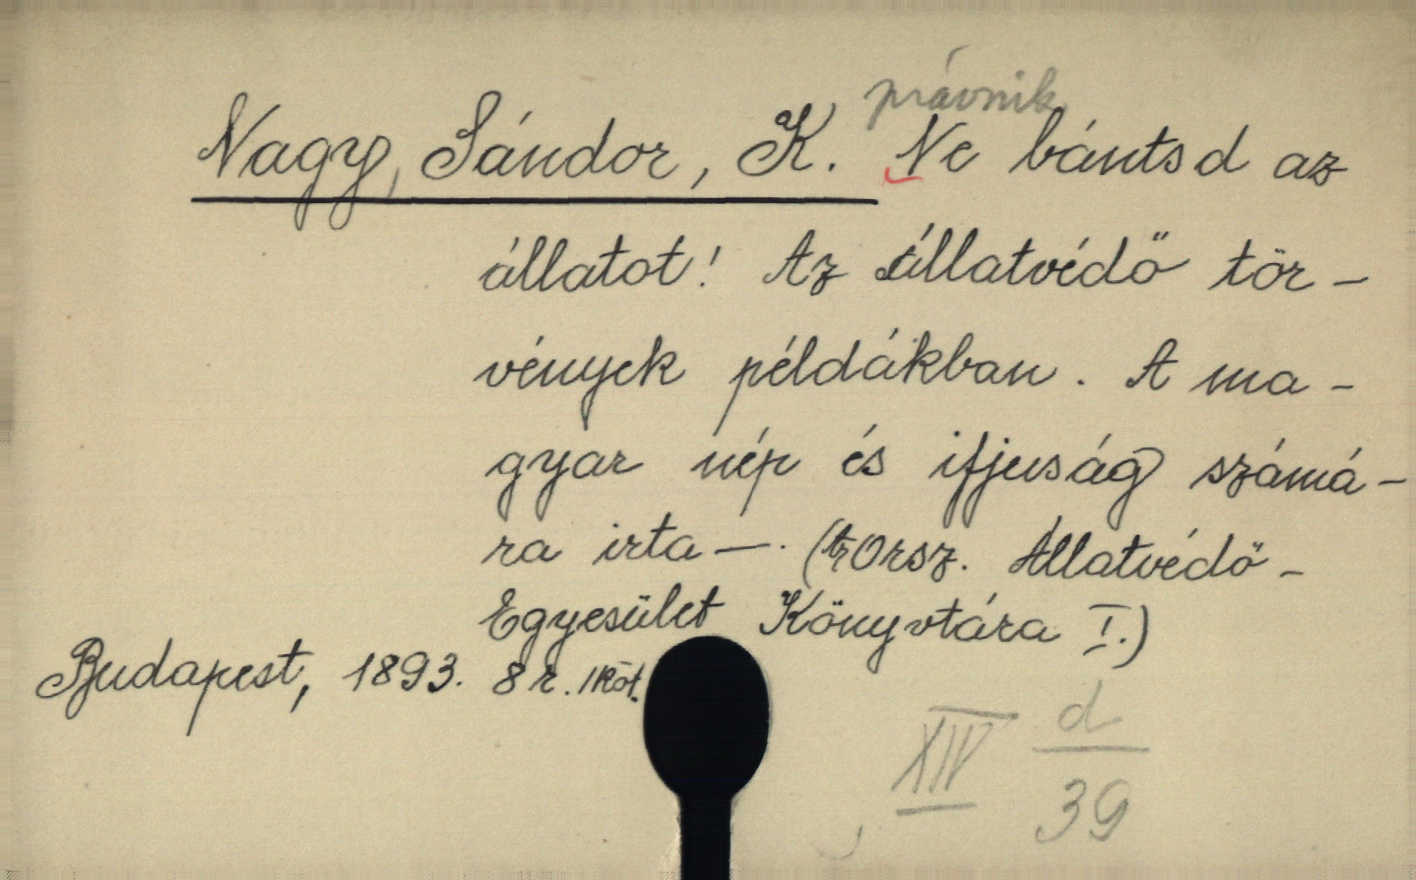 právnik
Nagy, Sándor, K. Ne bántsd az
állatot! Az állatvédő tör-
vények példákban. A ma-
gyar nép és ifjuság számá-
ra irta —. (Orsz. Állatvédő-
Egyesület Könyvtára I.)
Budapest, 1893. 8 r. 1 köt.
XIV d
39